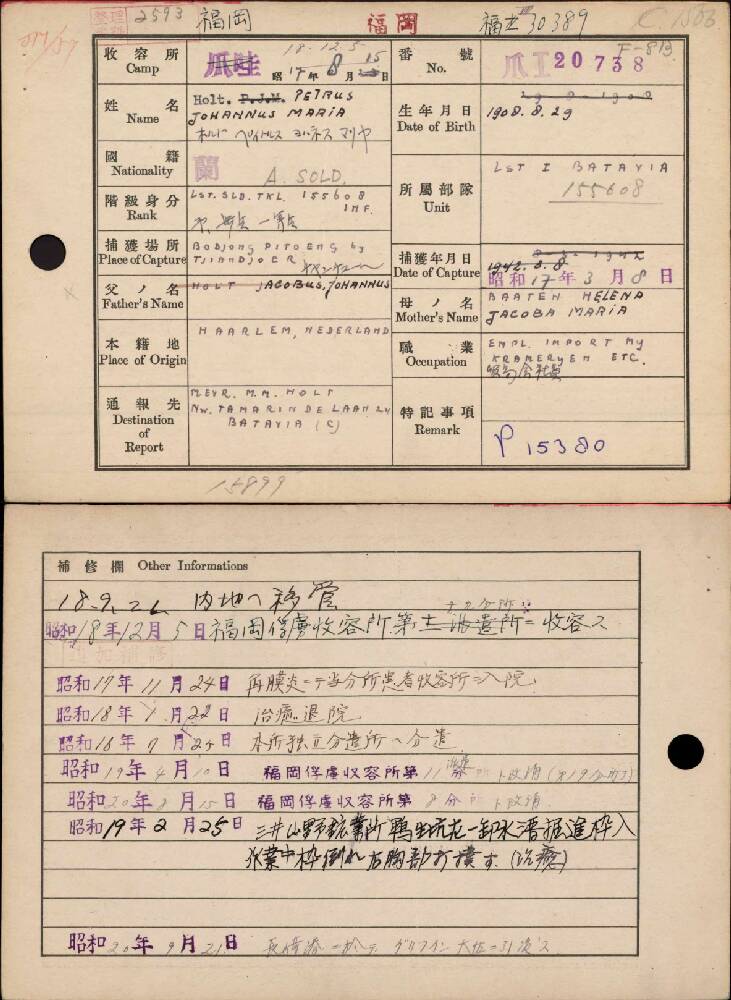 整理 2593 福岡 福岡 30389 C.1503
F-813
収容所 Camp 爪哇 18.12.5 昭17年8月15日 番號 No. 爪I 20738
姓名 Name Holt. P.J.M. PETRUS JOHANNUS MARIA
生年月日 Date of Birth 1908.8.29
國籍 Nationality 蘭 A. SOLD.
階級身分 Rank LST. SLD. TKL. 155608 INF.
所屬部隊 Unit LST I BATAVIA 155608
捕獲場所 Place of Capture BODJONG PITOENG by TJIANDJOER
捕獲年月日 Date of Capture 1942.3.8 昭和17年3月8日
父ノ名 Father's Name HOLT JACOBUS, JOHANNUS
母ノ名 Mother's Name BAATEN HELENA JACOBA MARIA
本籍地 Place of Origin HAARLEM, NEDERLAND
職業 Occupation EMPL. IMPORT My KRAMERYEN ETC.
通報先 Destination of Report MEVR. M.M. HOLT NW. TAMARINDELAAN BATAVIA (C)
特記事項 Remark P 15380
15899
補修欄 Other Informations
18.9.26 内地へ移管
昭和18年12月5日 福岡俘虜收容所第 派遣所ニ收容ス
昭和17年11月24日 当分所患者收容所ニ入院
昭和18年1月22日 治癒退院
昭和18年9月24日 本所独立分遣所ヘ分遣
昭和19年4月10日 福岡俘虜收容所第11 ト改稱
昭和20年8月15日 福岡俘虜收容所第8分所ト改稱
昭和19年2月25日 三井山野鉱業所鴨生坑左一卸水 掘進枠入
作業中枠倒れ右胸部打撲す (治癒)
昭和20年9月21日 長崎港ニ於テ 大佐ニ引渡ス